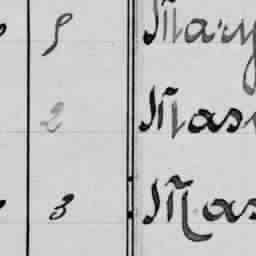 1 Mary
2 Mas
3 Mas